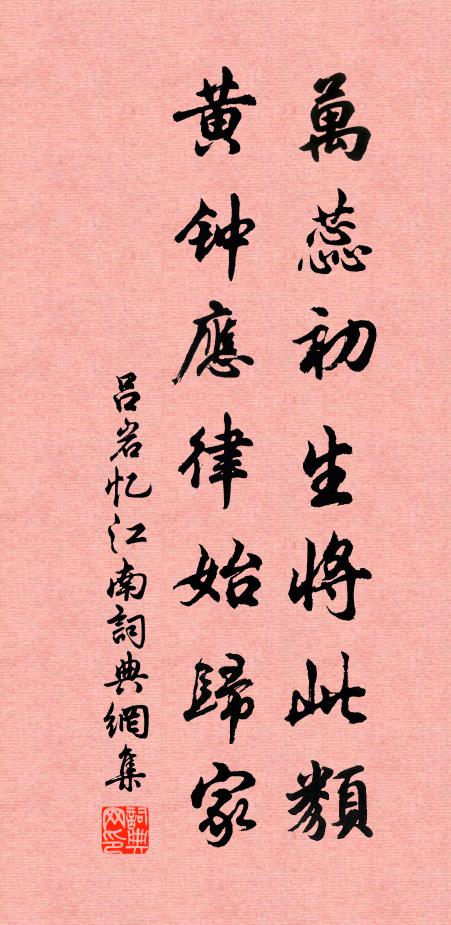 萬蕊初生將此類
黄钟應律始歸家
吕岩忆江南詞典網集
詞典网印